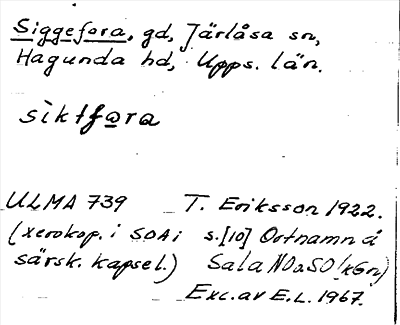 Siggefora, gd, Järlåsa sn,
Hagunda hd, Upps. län.
sìktfo̲ra
ULMA 739 T. Eriksson 1922.
(xerokop. i SOA i s.[10] Ortnamn å
särsk. kapsel.) Sala NO a SO
Exc. av E.L. 1967.